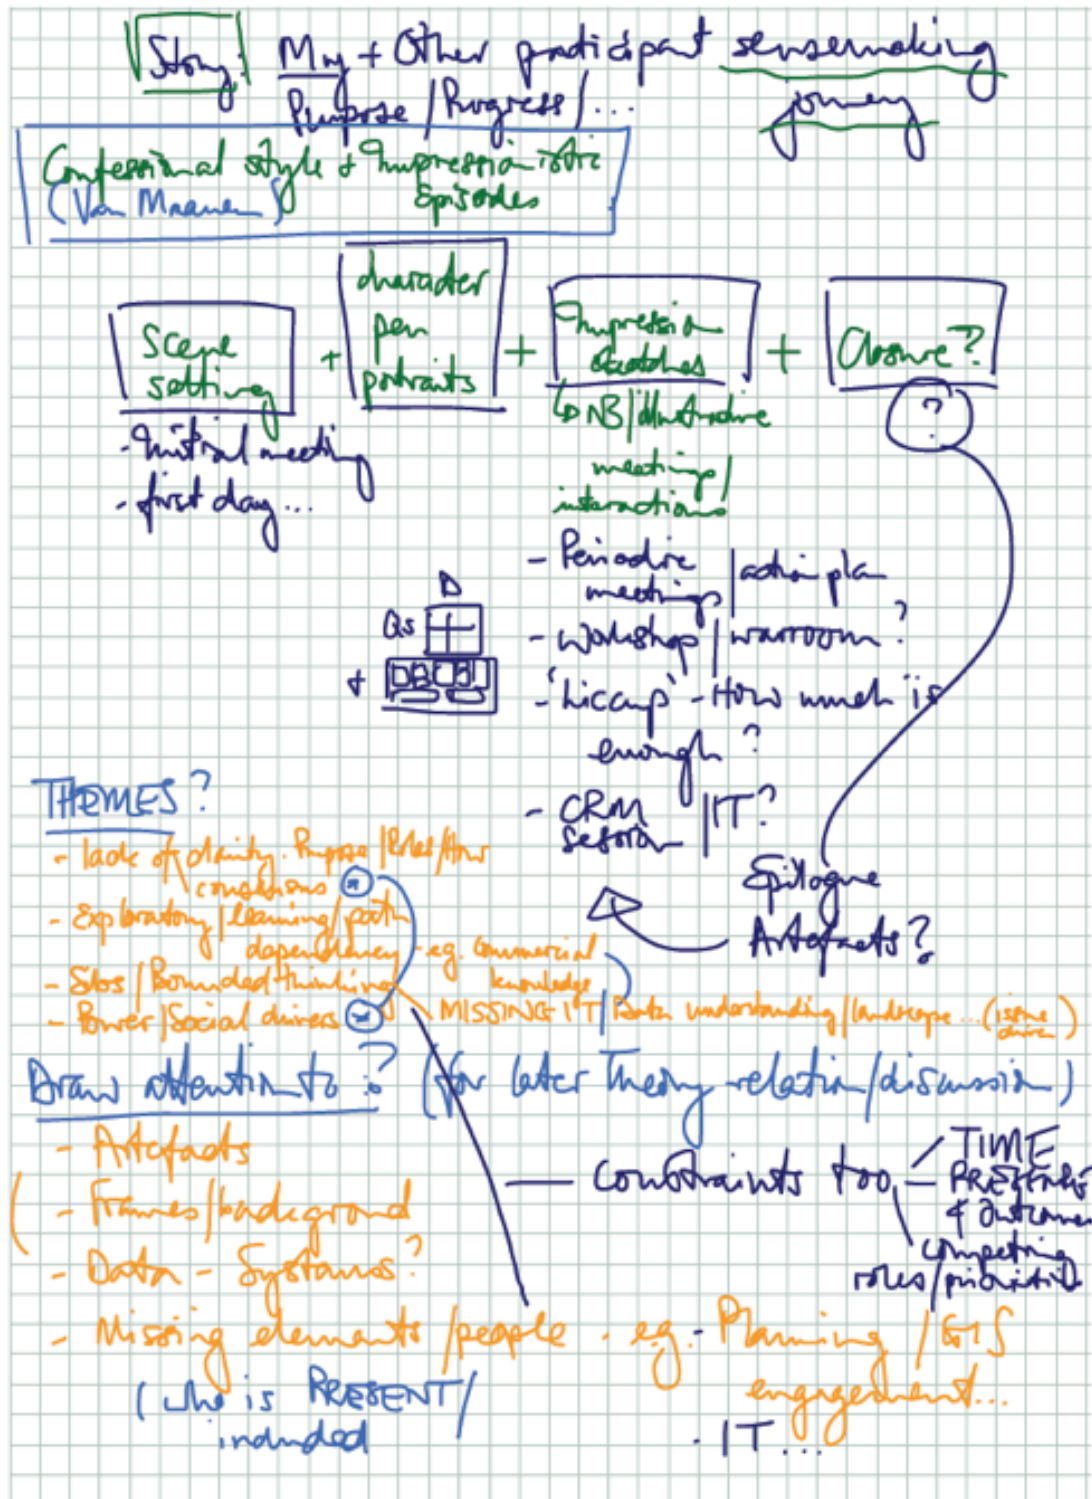 Story: My + Other participant sensemaking
Purpose / Progress / ... journey
Confessional style + Impressionistic
(Van Maanen) Episodes
Scene
setting
+
character
pen
portraits
+
Impression
sketches
+
Closure?
?
- Initial meeting
- first day...
NB/illustrative
meetings/
interactions
- Periodic | action plan
meetings
- Workshop | warroom?
- 'hiccup' - How much is
enough?
- CRM | IT?
session
D
Qs
+
Epilogue
Artefacts?
THEMES?
- lack of clarity. Purpose / Roles / How
conditions
- Exploratory / learning / path
dependency - eg. commercial
knowledge
- Silos / Bounded thinking
- Power / Social drivers MISSING IT / Data understanding / landscape ... (
Draw attention to:? (for later Theory relation/discussion)
- Artefacts
- Frames/background
- Data - Systems?
- Missing elements/people - eg. - Planning / GIS
engagement...
- IT ...
(who is PRESENT/
included
- Constraints too
- TIME
& outcome
competing
roles/priorities